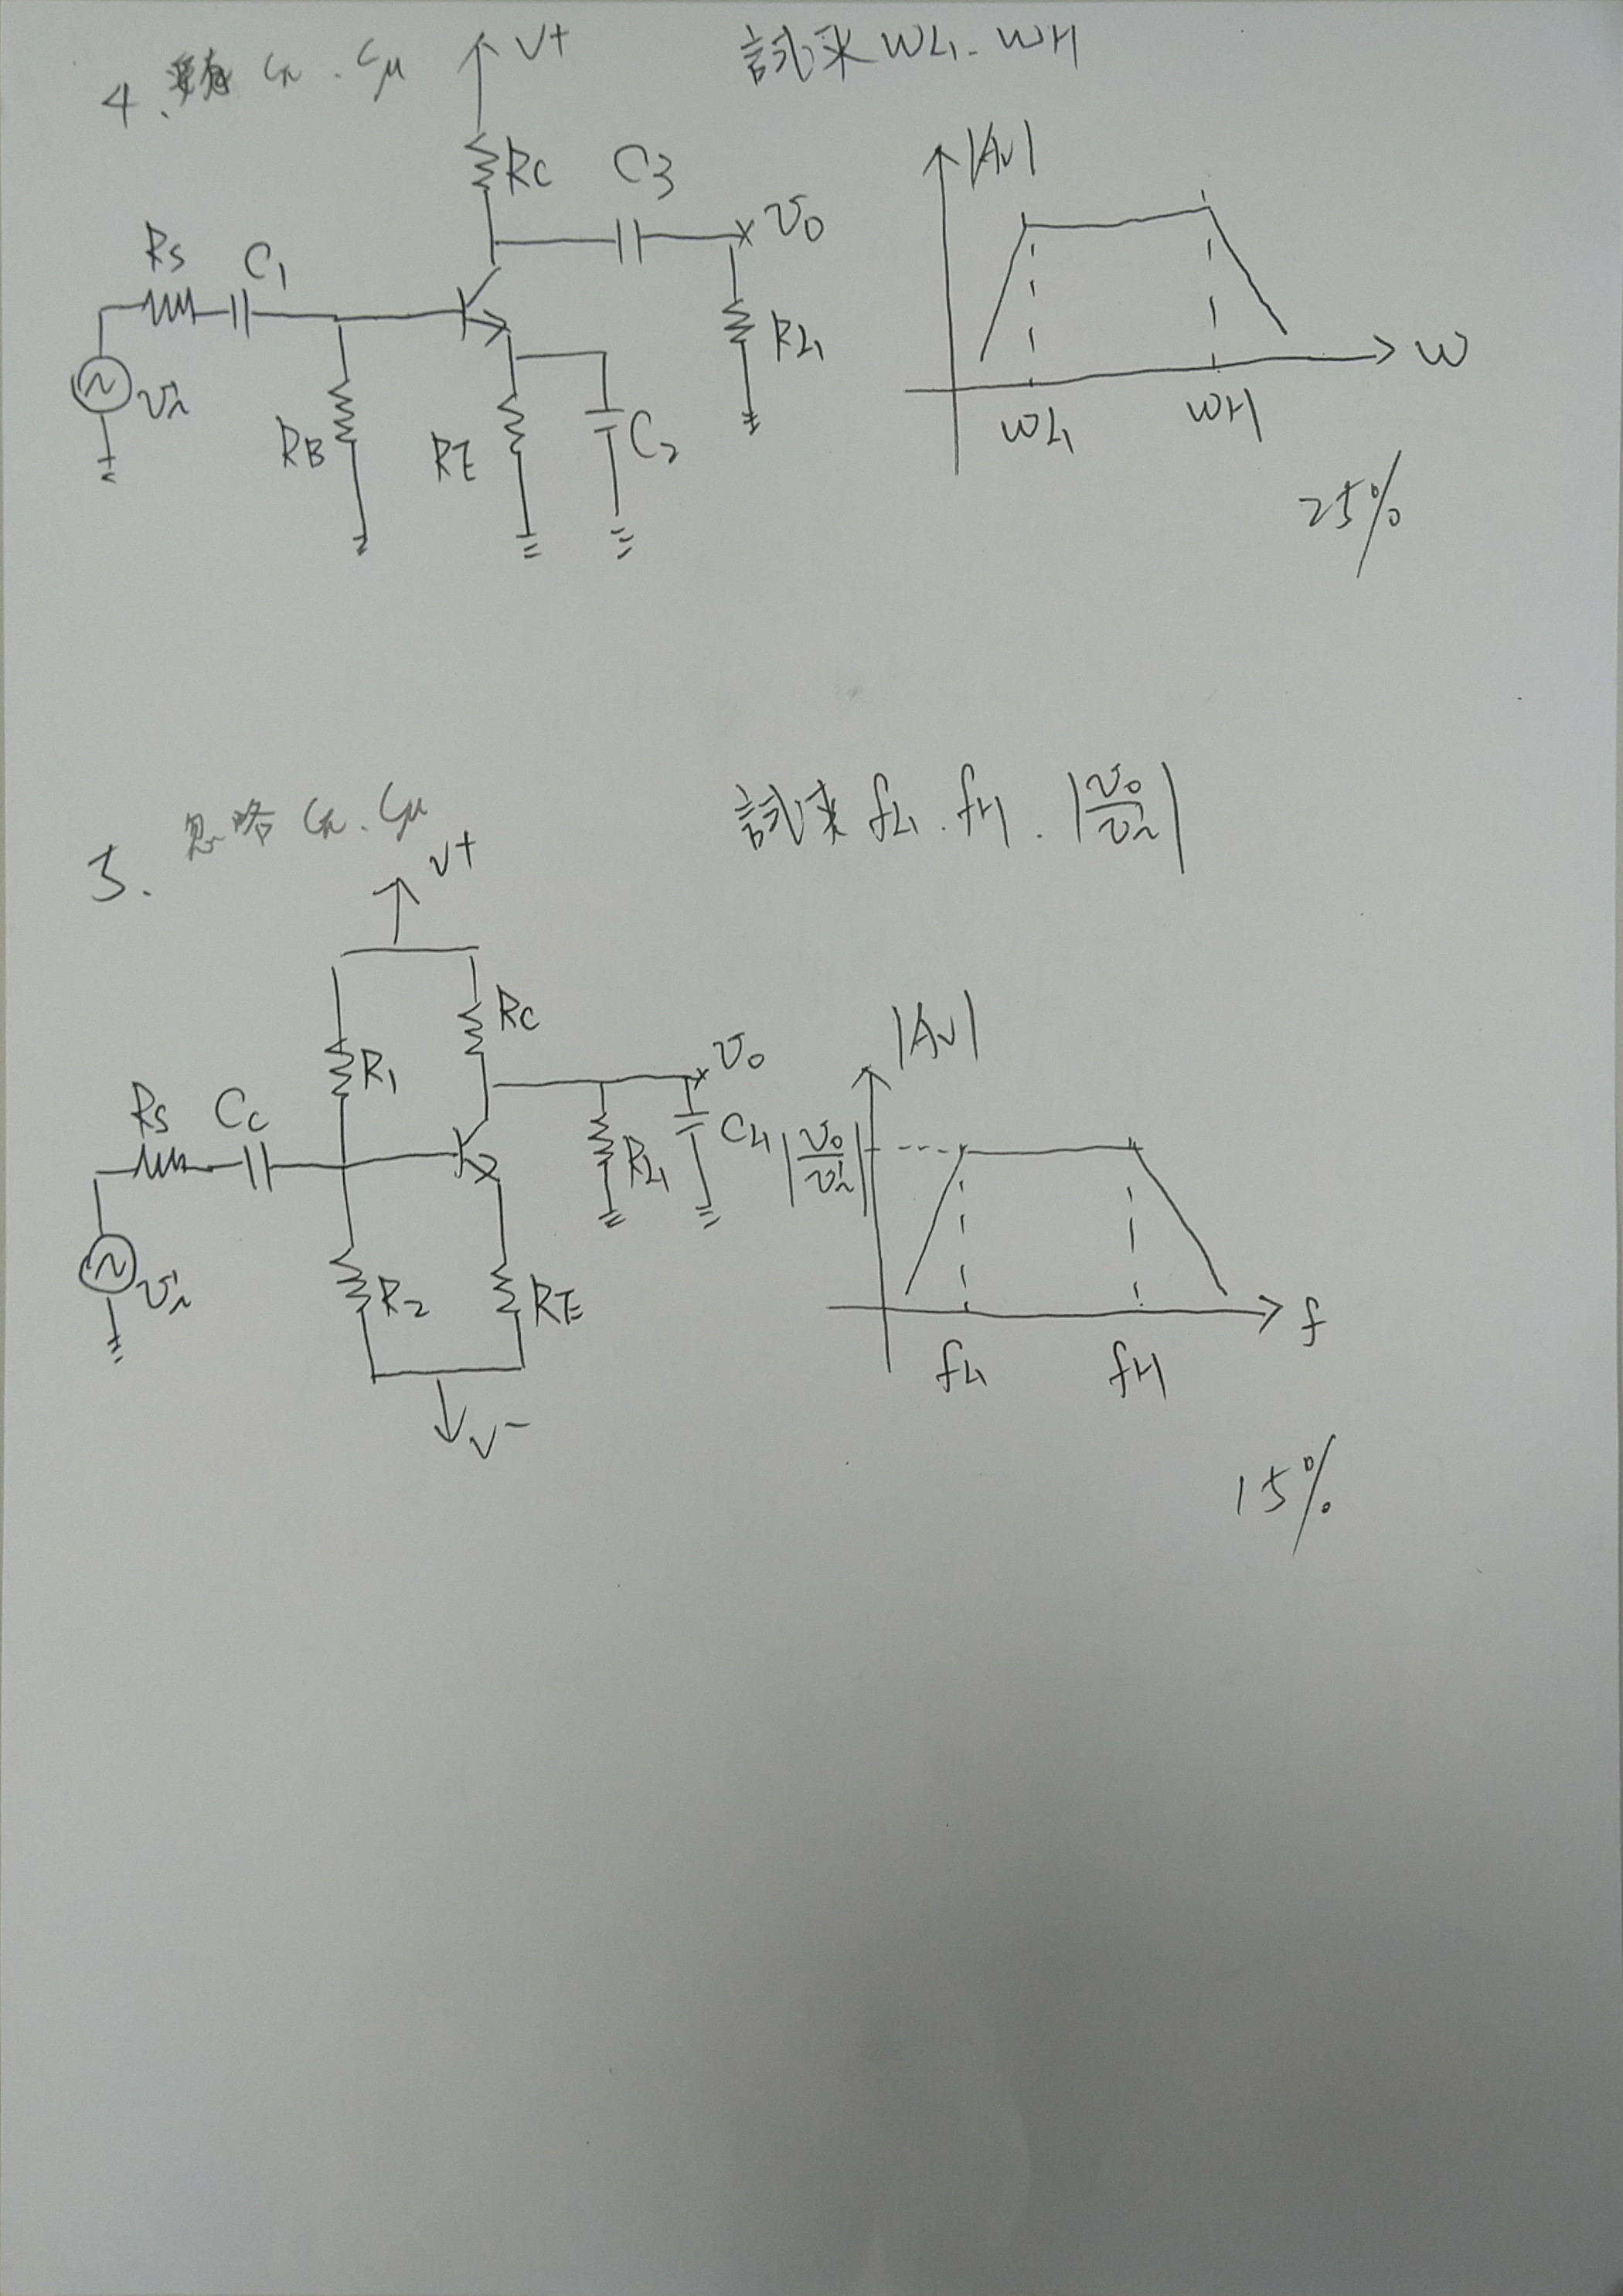 4. 要有 Cπ . Cμ
V+
試求 WL . WH
RC
C3
vo
RS
C1
vi
RB
RE
C2
RL
|Av|
W
WL
WH
25%
5. 忽略 Cπ . Cμ
試求 fL . fH . |vo/vi|
V+
RC
R1
vo
RS
CC
RL
CL
vi
R2
RE
V-
|Av|
|vo/vi|
f
fL
fH
15%